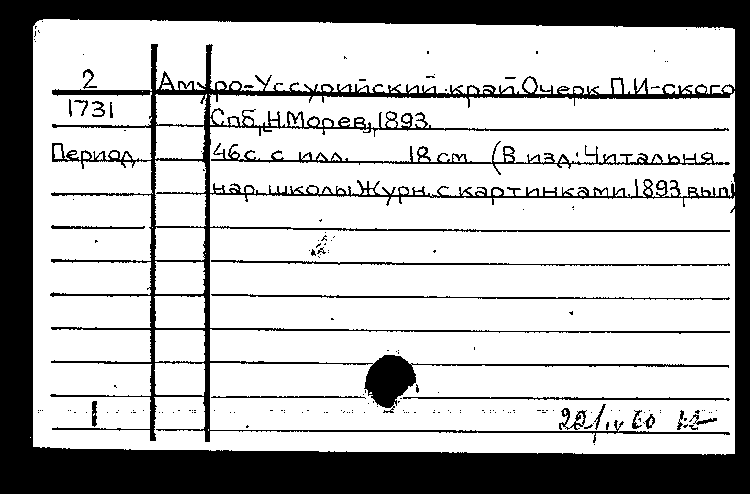 2 Амуро-Уссурийский край. Очерк П.И-ского
1731 Спб, Н.Морев, 1893.
Период. 46с. с илл. 18 см (В изд.: Читальня
нар. школы. Журн. с картинками. 1893, вып)
1
22/IV 60